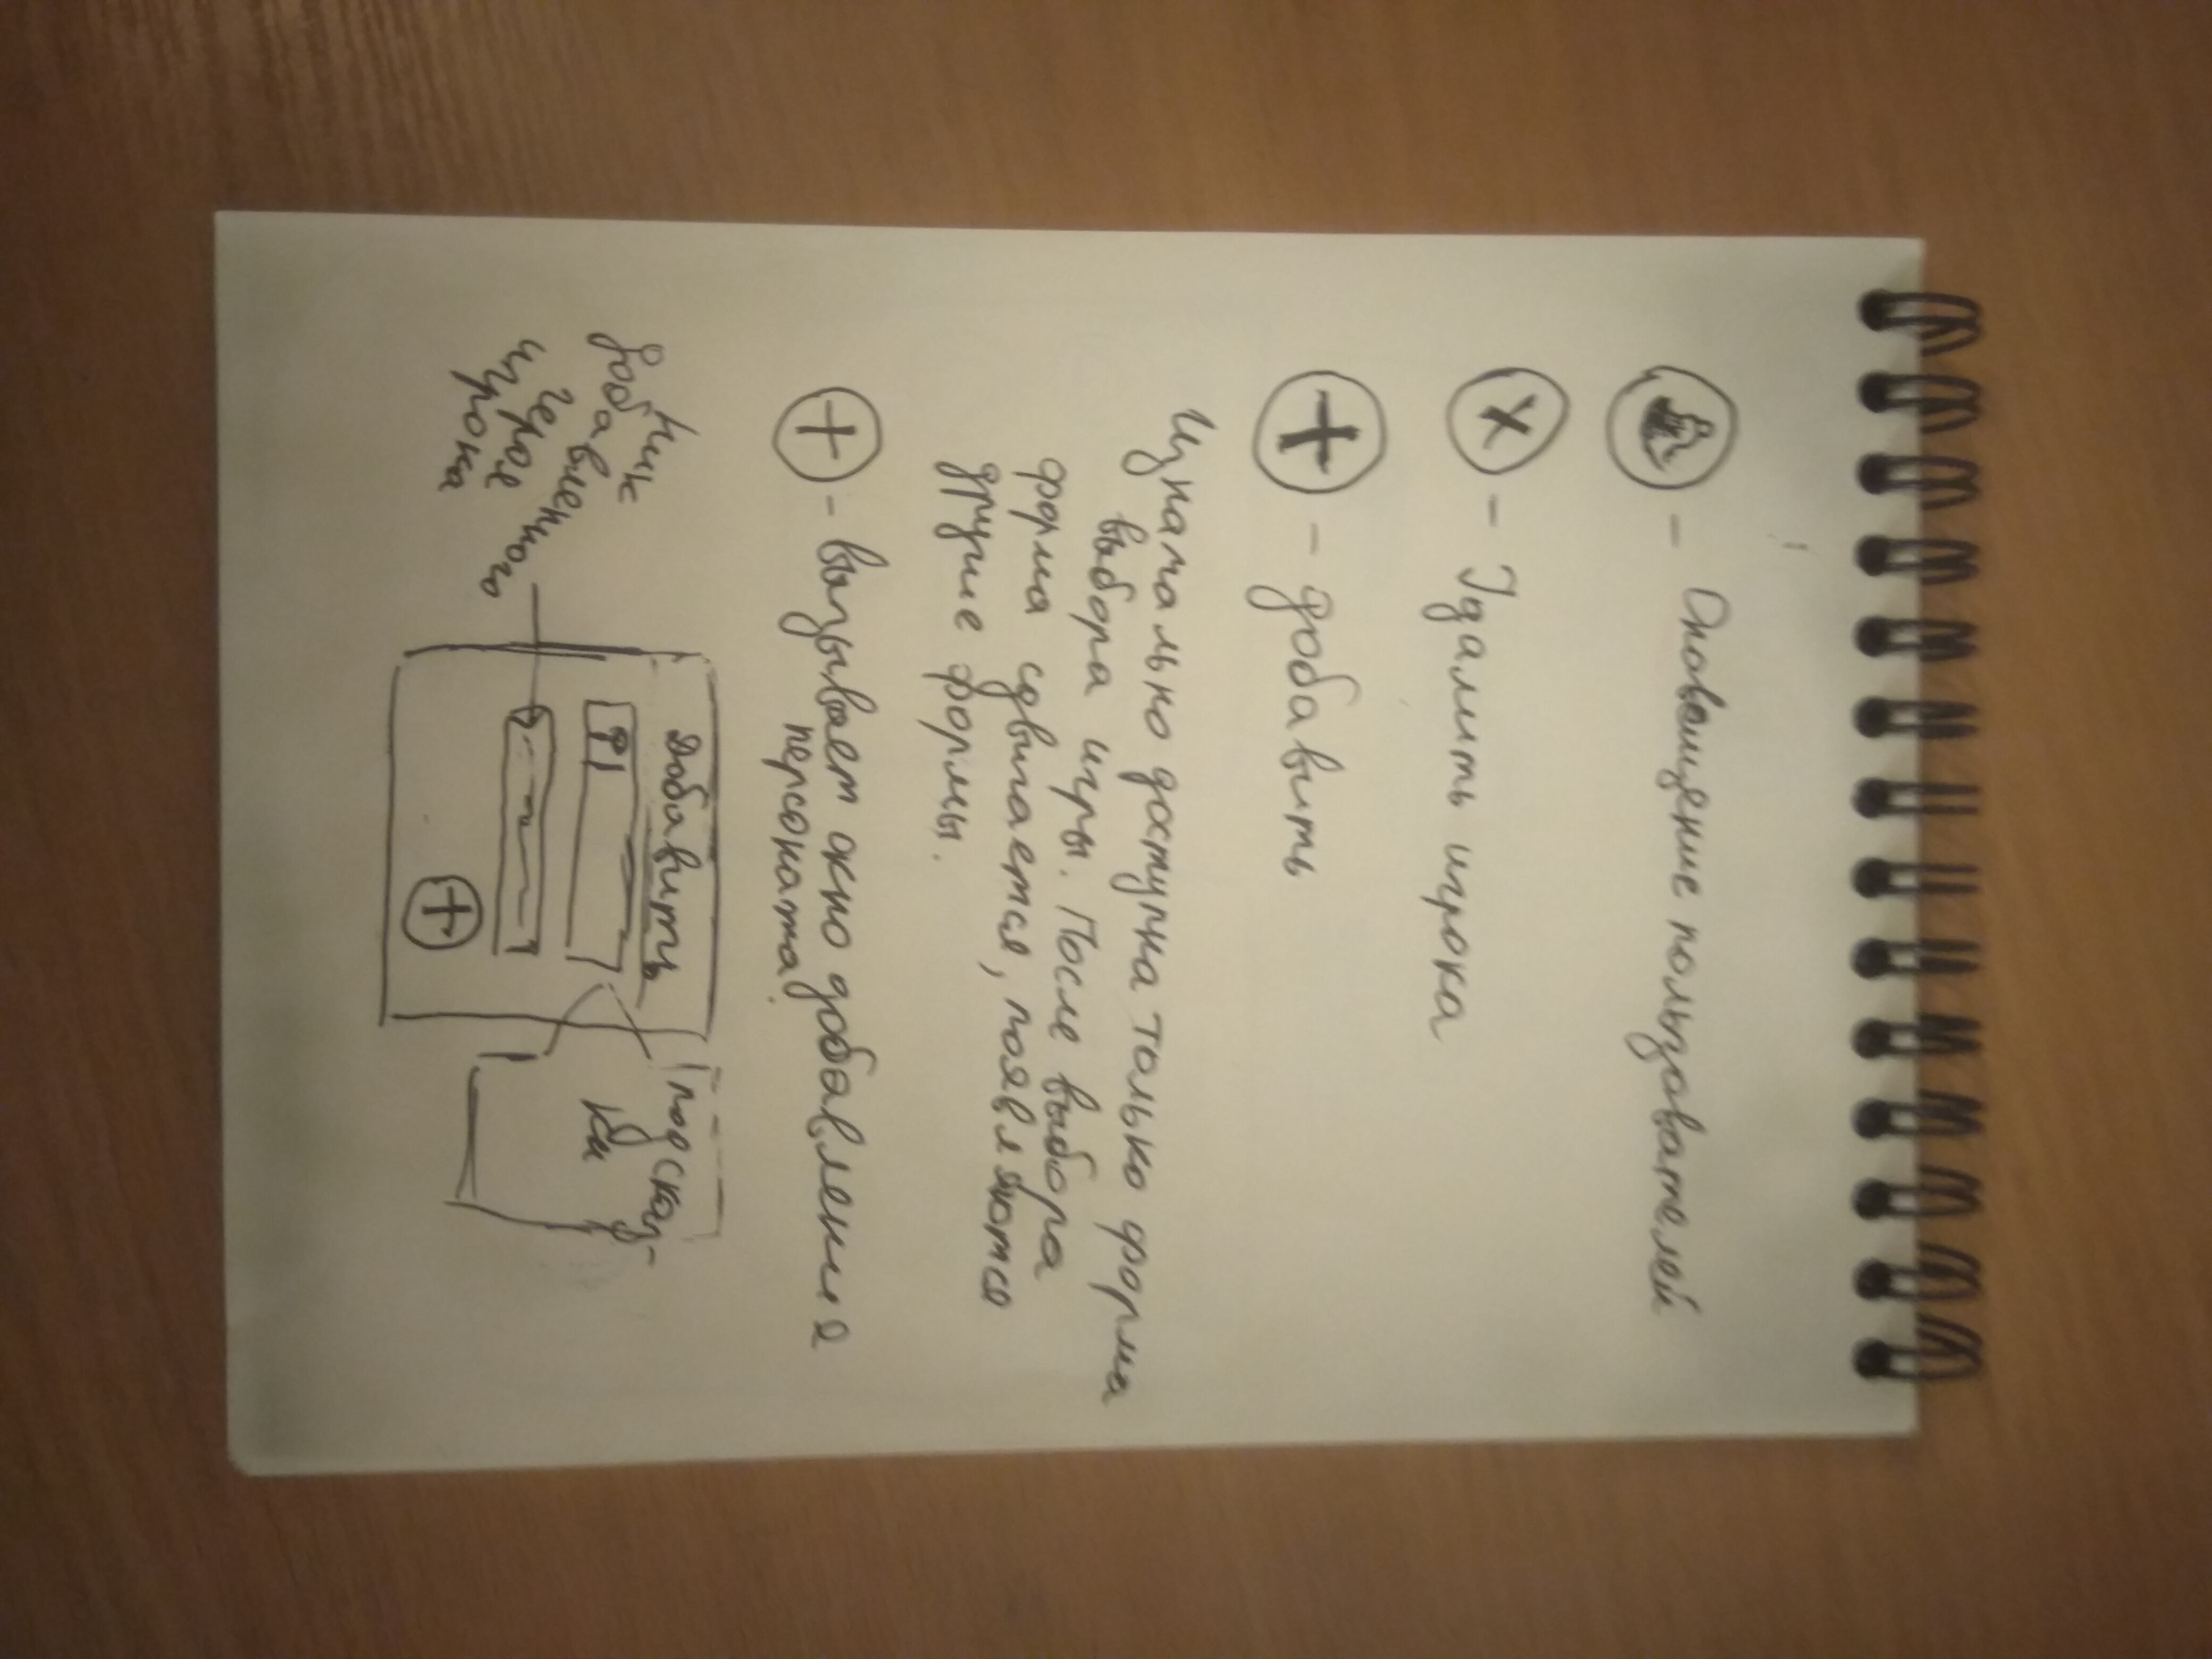 - Оповещение пользователей
X - Удалить игрока
+ - добавить
Изначально доступна только форма
выбора игры. После выбора
форма сдвигается, появляются
другие формы.
+ - вызывает окно добавления
персонажа
Добавить
подсказ-
ки
ник
добавленного
игрока
+